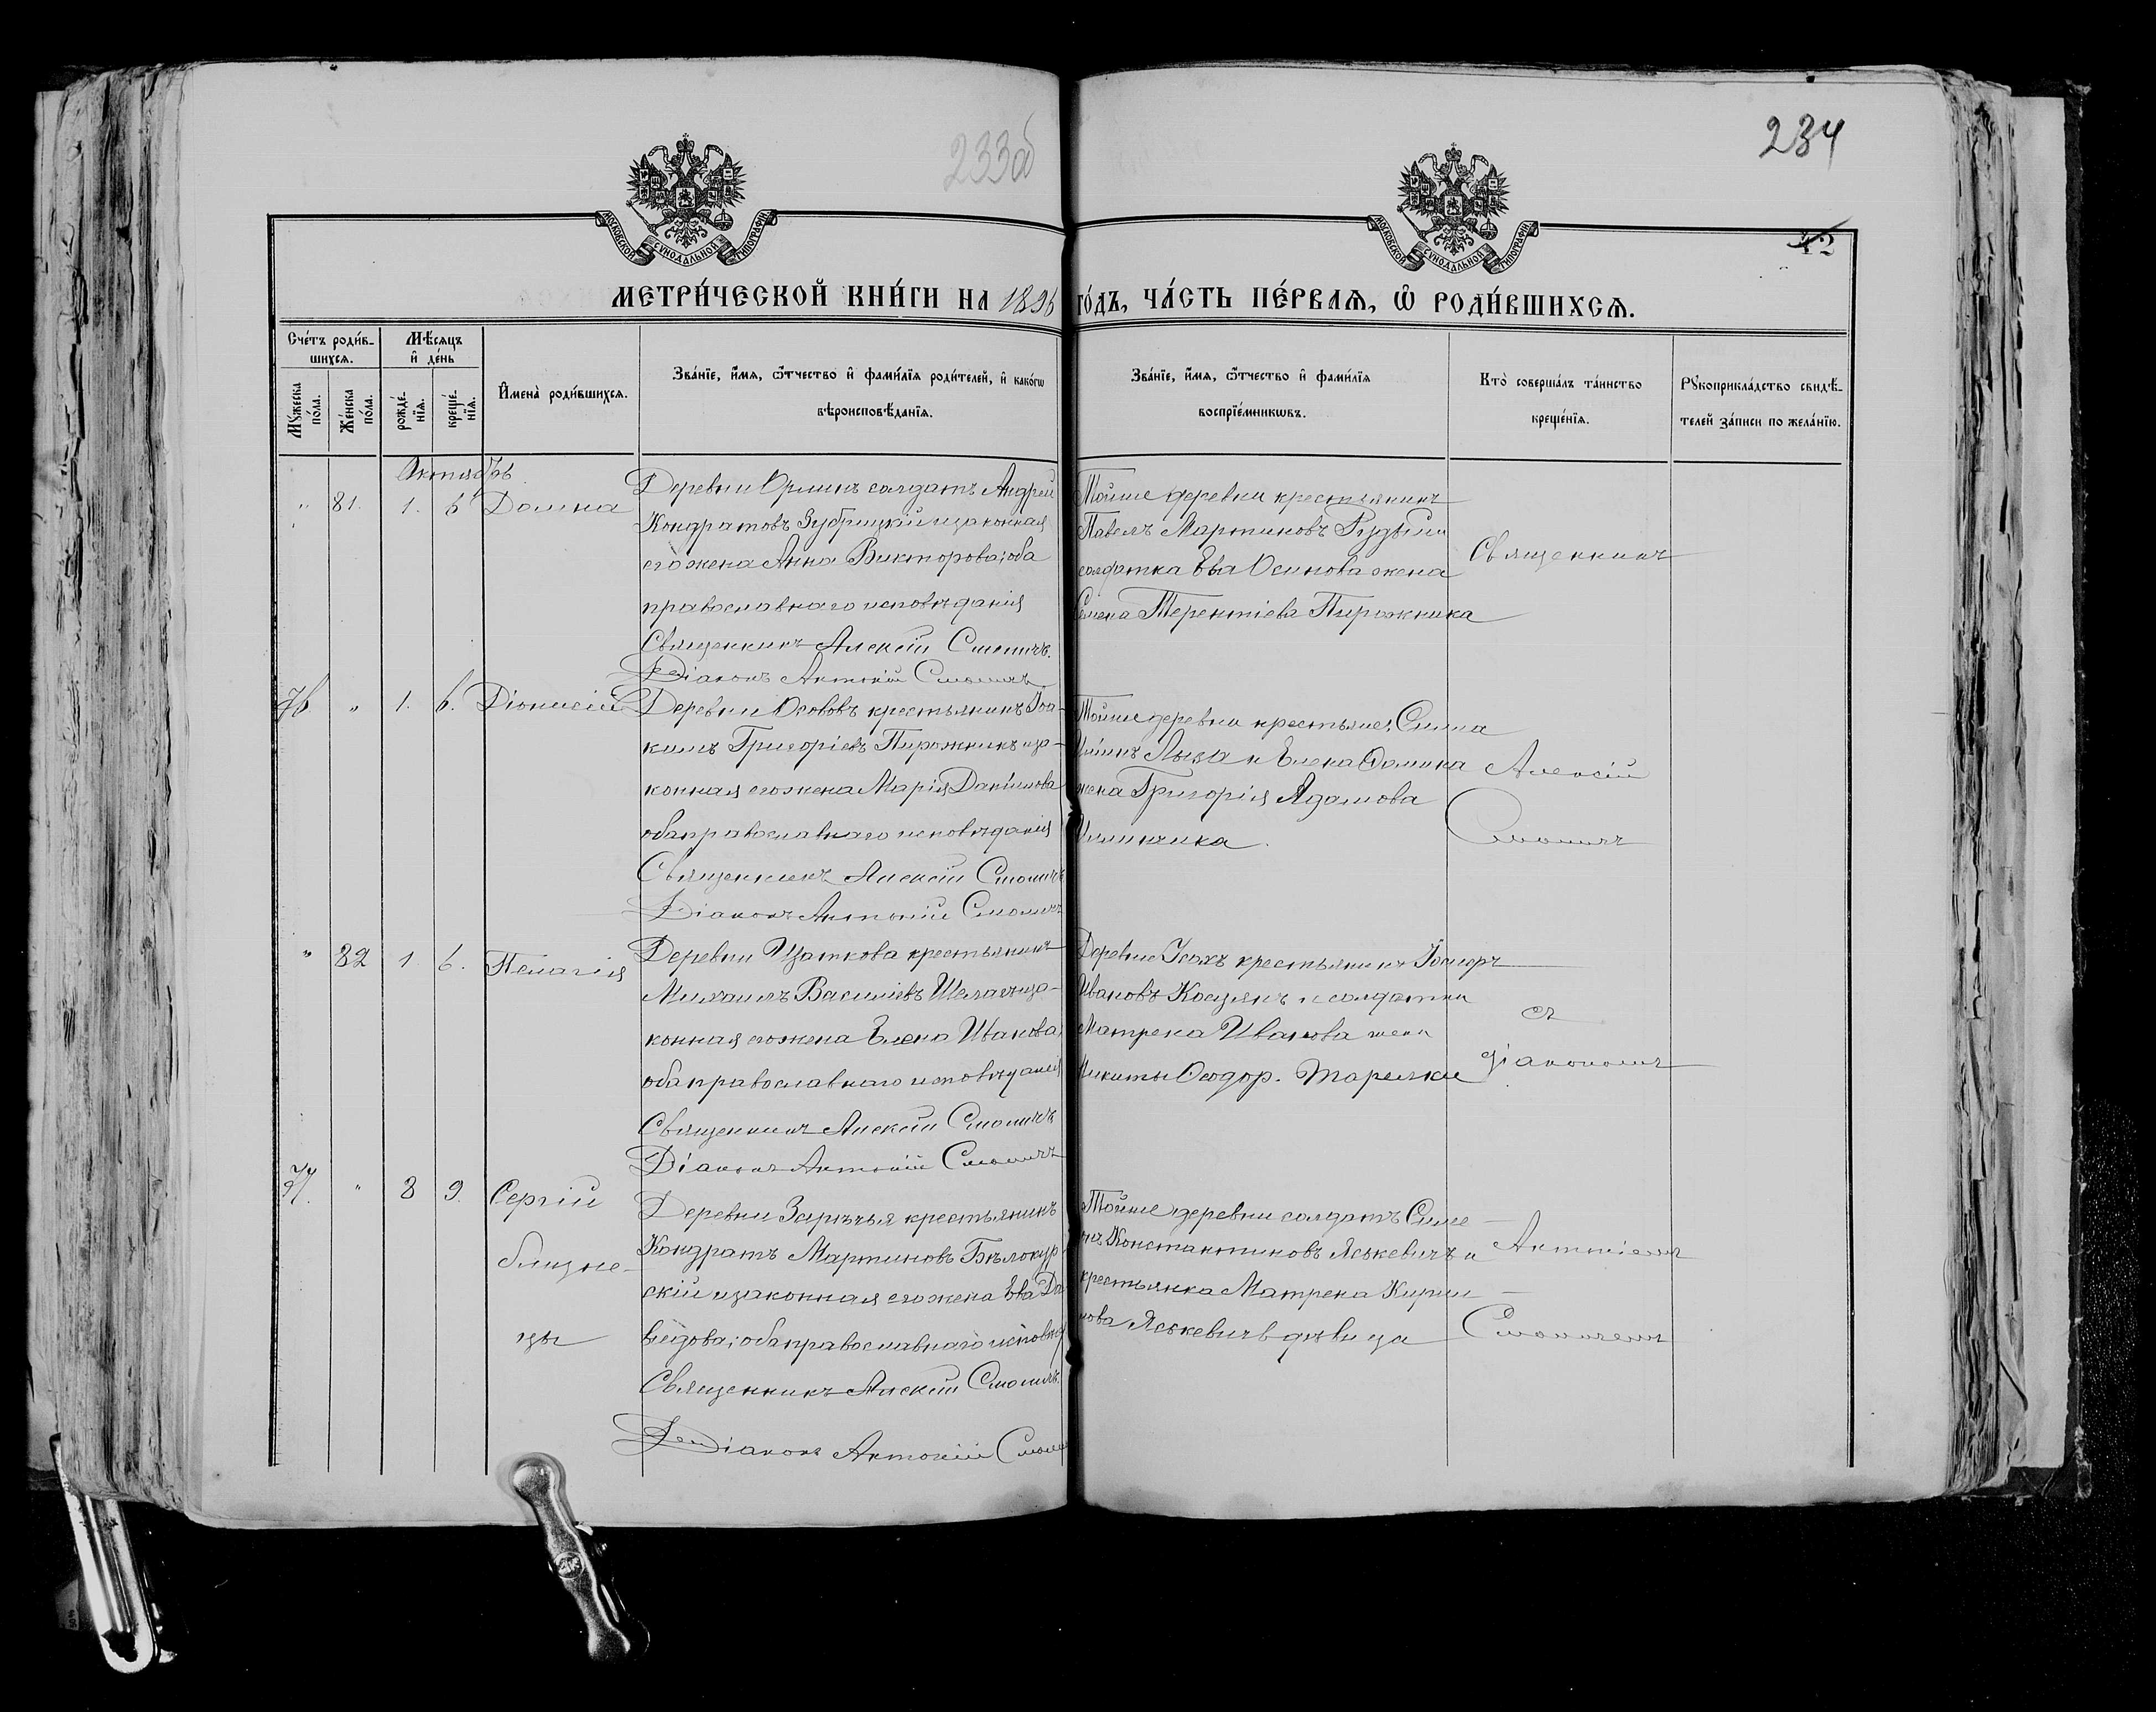 233об
234
42
МОСКОВСКОЙ СѴНОДАЛЬНОЙ ТИПОГРАФІИ
МОСКОВСКОЙ СѴНОДАЛЬНОЙ ТИПОГРАФІИ
МЕТРИ́ЧЕСКОЙ КНИ́ГИ НА 1896 ГО́ДЪ, ЧА́СТЬ ПЕ́РВАѦ, Ѡ҆ РОДИ́ВШИХСѦ.
Сче́тъ роди́в-
шихсѧ.
Мѣ́сѧцъ
и҆ де́нь
Мꙋ́жеска
по́ла.
Же́нска
по́ла.
рожде́-
нїѧ.
креще́-
нїѧ.
И҆мена̀ роди́вшихсѧ.
Зва́нїе, и҆́мѧ, ѻ҆́тчество и҆ фами́лїѧ роди́телей, и҆ како́гѡ
вѣроисповѣ́данїѧ.
Зва́нїе, и҆́мѧ, ѻ҆́тчество и҆ фами́лїѧ
воспрїе́мникѡвъ.
Кто̀ соверша́лъ та́инство
креще́нїѧ.
Рꙋкоприкла́дство свидѣ́-
телей за́писи по жела́нїю.
Октябрь
" 81. 1. 6 Домна
Деревни Орлинъ солдатъ Андрей
Кондратовъ Зубрицкій и законная
его жена Анна Викторова; оба
православнаго исповѣданія
Священникъ Алексій Смоличъ.
Діаконъ Антоній Смоличъ
Тойже деревни крестьянинъ
Павелъ Мартиновъ и
солдатка Ева Осипова жена
Семена Терентіева Пирожника
Священникъ
76 " 1. 6. Діонисій
Деревни Осововъ крестьянинъ Іоа-
кимъ Григоріевъ Пирожникъ и за-
конная его жена Марія Даніилова
оба православнаго исповѣданія
Священникъ Алексій Смоличъ
Діаконъ Антоній Смоличъ
Тойже деревни крестьяне: Сила
и Елена Ѳомина
жена Григорія Адамова
Алексій
Смоличъ
" 82 1 6. Пелагія
Деревни Щаткова крестьянинъ
Михаилъ Василіевъ и за-
конная его жена Елена Иванова,
оба православнаго исповѣданія
Священникъ Алексій Смоличъ
Діаконъ Антоній Смоличъ
Деревни Усохъ крестьянинъ Іосифъ
Ивановъ и солдатка
Матрена Иванова жена
Никиты Ѳеодор. Тарелки
съ
діакономъ
77. " 8 9. Сергій
близне-
цы
Деревни Зарѣчья крестьянинъ
Кондратъ Мартиновъ Бѣлокур-
скій и законная его жена Ева Да-
видова; оба православнаго исповѣд
Священникъ Алексій Смоличъ.
Діаконъ Антоній Смолич
Тойже деревни солдатъ Симе-
онъ Константиновъ Яськевичъ и
крестьянка Матрена Кирил-
лова Яськевичъ дѣвица
Антоніемъ
Смоличемъ